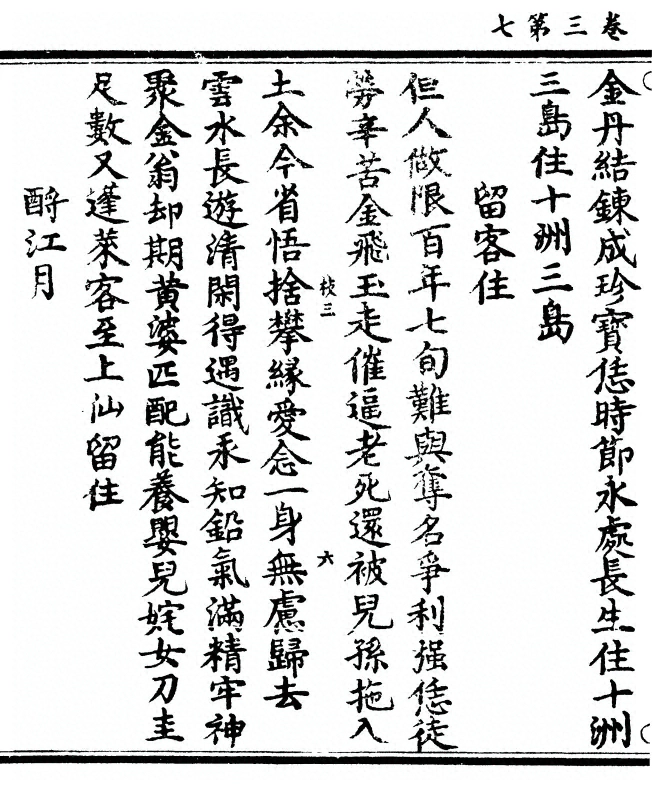 卷三第七
金丹結鍊成珍寶恁時節永處長生住十洲
三島住十洲三島
留客住
但人做限百年七旬難與奪名爭利强恁徒
勞辛苦金飛玉走催逼老死還被兒孫拖入
土余今省悟捨攀緣愛念一身無慮歸去
雲水長遊清閑得遇識汞知鉛氣滿精牢神
聚金翁却期黄婆匹配能養嬰兒姹女刀圭
足數又蓬萊客至上仙留住
酹江月
枝三
六